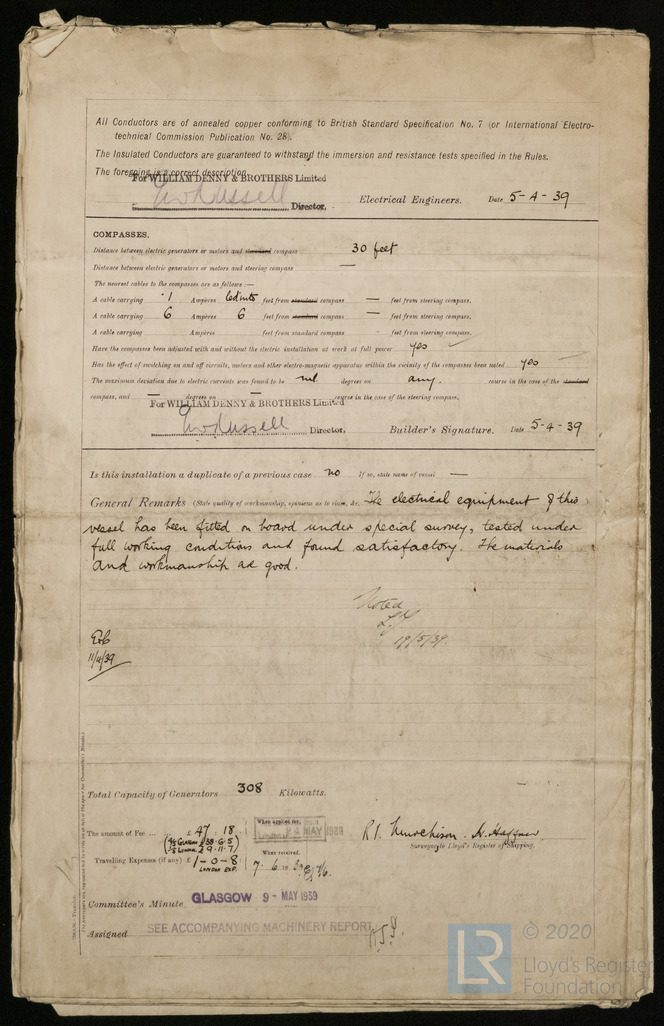 All Conductors are of annealed copper conforming to British Standard Specification No. 7 (or International Electro-
technical Commission Publication No. 28).
The Insulated Conductors are guaranteed to withstand the immersion and resistance tests specified in the Rules.
The foregoing is a correct description.
For WILLIAM DENNY & BROTHERS Limited
Director, Electrical Engineers. Date 5-4-39
COMPASSES.
Distance between electric generators or motors and standard compass 30 feet
Distance between electric generators or motors and steering compass —
The nearest cables to the compasses are as follows:—
A cable carrying .1 Ampères led into feet from standard compass — feet from steering compass.
A cable carrying 6 Ampères 6 feet from standard compass — feet from steering compass.
A cable carrying Ampères feet from standard compass feet from steering compass.
Have the compasses been adjusted with and without the electric installation at work at full power yes
Has the effect of switching on and off circuits, motors and other electro-magnetic apparatus within the vicinity of the compasses been noted yes
The maximum deviation due to electric currents was found to be nil degrees on any. course in the case of the standard
compass, and — degrees on — course in the case of the steering compass.
For WILLIAM DENNY & BROTHERS Limited
Director, Builder's Signature. Date 5-4-39
Is this installation a duplicate of a previous case no If so, state name of vessel —
General Remarks (State quality of workmanship, opinions as to class, &c. The electrical equipment of this
vessel has been fitted on board under special survey, tested under
full working conditions and found satisfactory. The materials
and workmanship are good.
Noted
19/5/39.
11/4/39
Total Capacity of Generators 308 Kilowatts.
The amount of Fee ... £ 47 : 18 : When applied for,
£38.6.5
£9.11.7 24 MAY 1939
Travelling Expenses (if any) £ 1-0-8 When received,
LONDON EXP.
R.J. Murchison. H.
Surveyor to Lloyd's Register of Shipping.
Committee's Minute GLASGOW 9 - MAY 1939
Assigned SEE ACCOMPANYING MACHINERY REPORT
LR
© 2020
Lloyd's Register
Foundation